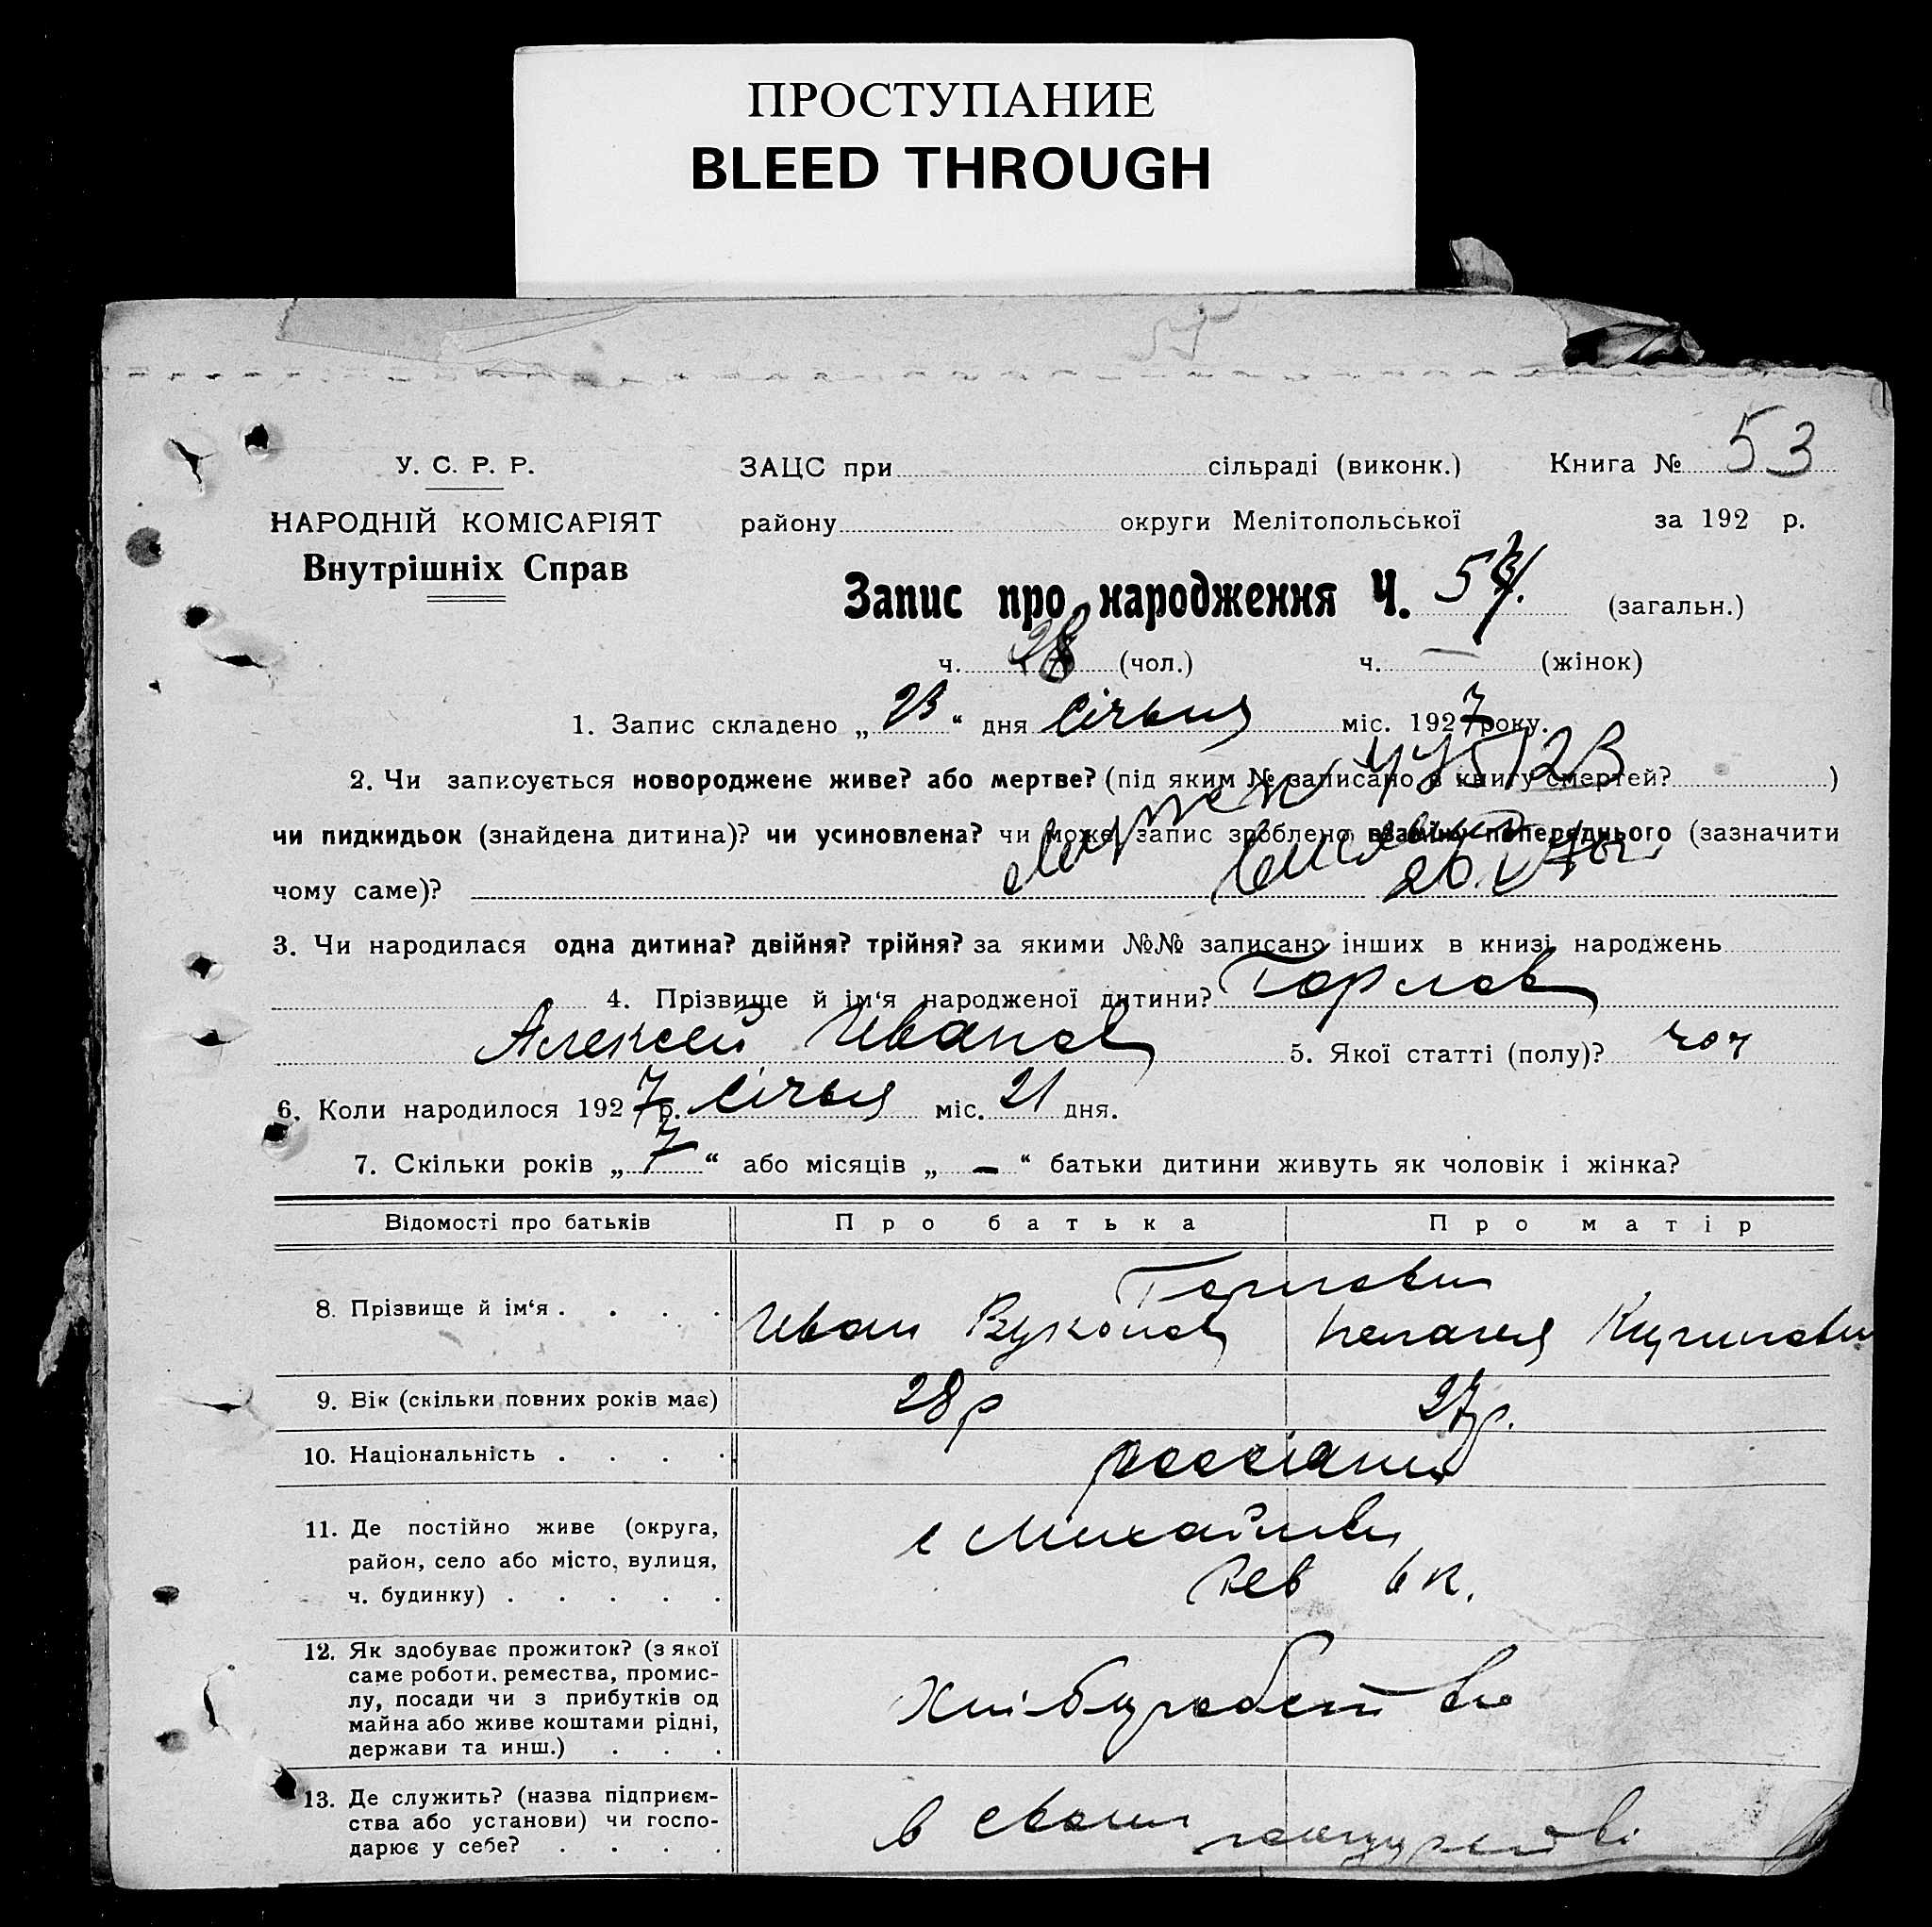 ПРОСТУПАНИЕ
BLEED THROUGH
У. С. Р. Р. ЗАЦС при сільраді (виконк.) Книга № 53
НАРОДНІЙ КОМІСАРІЯТ району округи Мелітопольської за 192 р.
Внутрішніх Справ
Запис про народження Ч. (загальн.)
ч. 28 (чол.) ч. — (жінок)
1. Запис складено „ 23 “ дня Січня міс. 1927 року.
2. Чи записується новороджене живе? або мертве? (під яким № записано в книгу смертей? )
чи пидкидьок (знайдена дитина)? чи усиновлена? чи може запис зроблено взамін попереднього (зазначити
чому саме)?
3. Чи народилася одна дитина? двійня? трійня? за якими №№ записано інших в книзі народжень
4. Прізвище й ім‘я народженої дитини? Горлов
Алексей Иванов 5. Якої статті (полу)? чоч
6. Коли народилося 1927 р. Січня міс. 21 дня.
7. Скільки років „ 7 “ або місяців „ — “ батьки дитини живуть як чоловік і жінка?
Відомості про батьків Про батька Про матір
Горлови
8. Прізвище й ім‘я . . . . Иван Пелагея
9. Вік (скільки повних років має) 28 р 27 р.
10. Національність . . . . россіяни
11. Де постійно живе (округа,
район, село або місто, вулиця,
ч. будинку) . . . . .
с Михайлівка
12. Як здобуває прожиток? (з якої
саме роботи, ремества, промис-
лу, посади чи з прибутків од
майна або живе коштами рідні,
держави та инш.) . . .
хлібуробство
13. Де служить? (назва підприєм-
ства або установи) чи госпо-
дарює у себе? . . . .
в своим господарстві